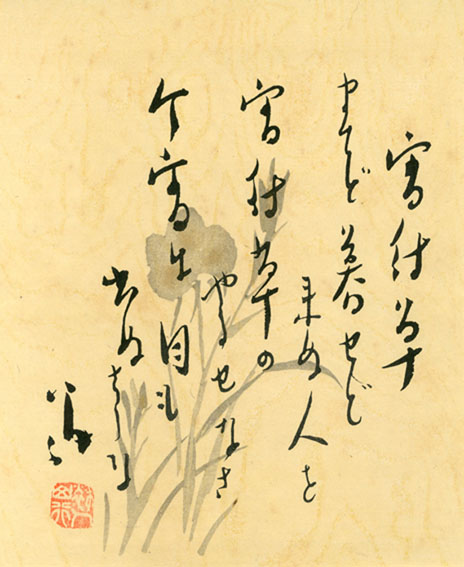 宵待草
まてど暮せど
来ぬ人を
宵待草の
やるせなさ
今宵は月も
出ぬさうな